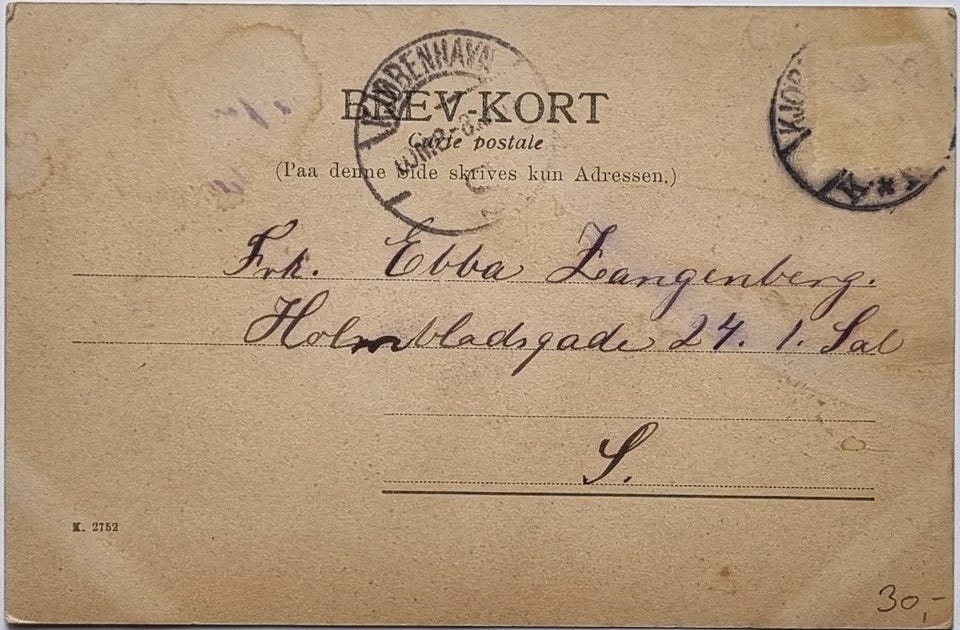 KJØBENHAVN
BREV-KORT
Carte postale
(Paa denne Side skrives kun Adressen.)
Frk. Ebba Zangenberg.
Holmbladsgade 24. 1. Sal
S.
K. 2752
30,-